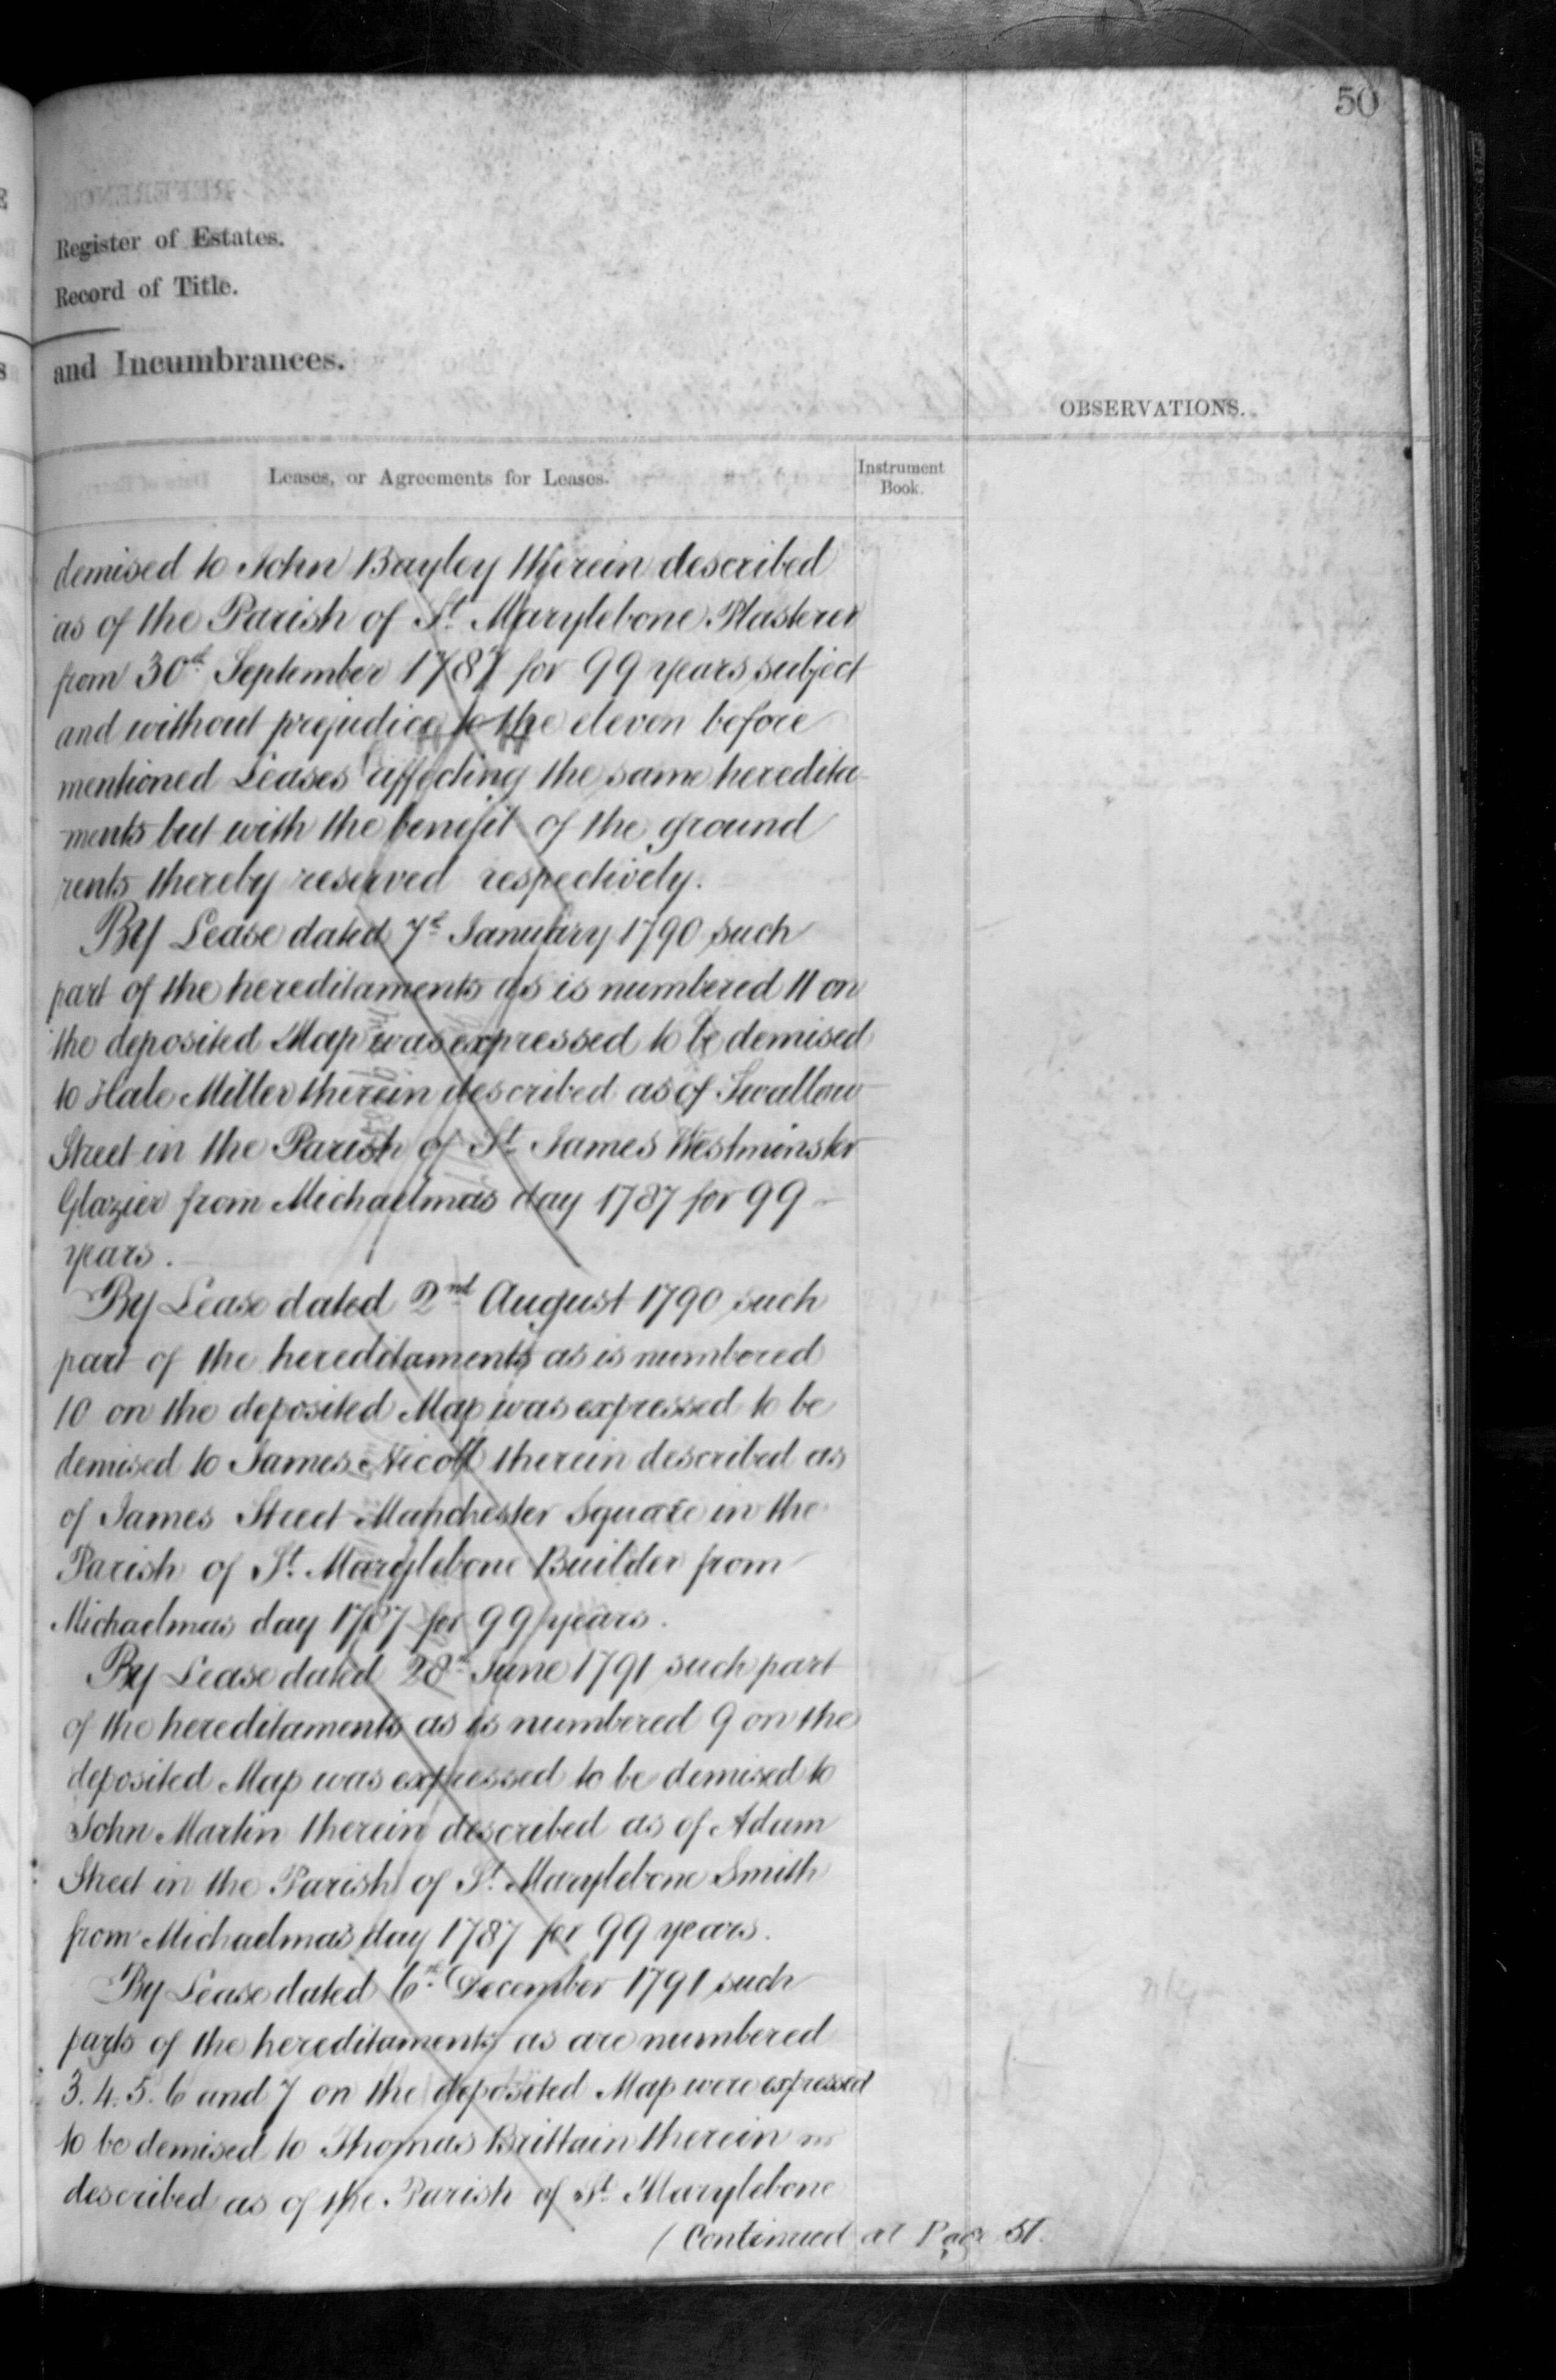 50
Register of Estates.
Record of Title.
and Incumbrances.
OBSERVATIONS.
Leases, or Agreements for Leases.
Instrument
Book.
demised to John Bayley therein described
as of the Parish of St. Marylebone Plasterer
from 30th September 1787 for 99 years subject
and without prejudice to the eleven before
mentioned Leases affecting the same heredita-
ments but with the benefit of the ground
rents thereby reserved respectively.
By Lease dated 7th January 1790 such
part of the hereditaments as is numbered 11 on
the deposited Map was expressed to be demised
to Hale Miller therein described as of Swallow
Street in the Parish of St. James Westminster
Glazier from Michaelmas day 1787 for 99
years.
By Lease dated 2nd August 1790 such
part of the hereditaments as is numbered
10 on the deposited Map was expressed to be
demised to James Nicoll therein described as
of James Street Manchester Square in the
Parish of St. Marylebone Builder from
Michaelmas day 1787 for 99 years.
By Lease dated 28th June 1791 such part
of the hereditaments as is numbered 9 on the
deposited Map was expressed to be demised to
John Martin therein described as of Adam
Street in the Parish of St. Marylebone Smith
from Michaelmas day 1787 for 99 years.
By Lease dated 6th December 1791 such
parts of the hereditaments as are numbered
3. 4. 5. 6 and 7 on the deposited Map were expressed
to be demised to Thomas Brittain therein
described as of the Parish of St. Marylebone
(Continued at Page 51.